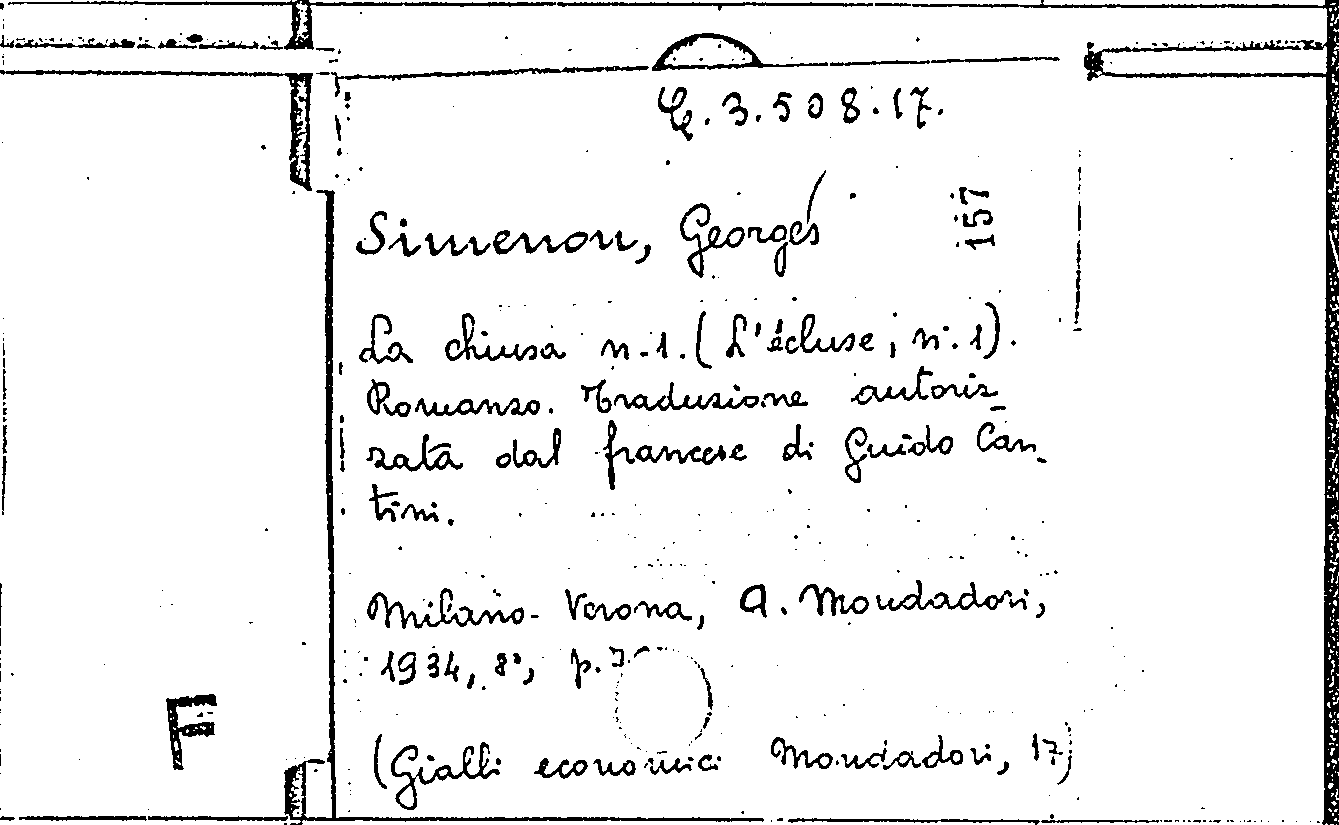 C.3.508.17.
157
Simenon, Georges
La chiusa n.1. (L'écluse, n.1).
Romanzo. Traduzione autoriz_
zata dal francese di Guido Can_
tini.
Milano-Verona, A. Mondadori,
1934, 8°, p.
(Gialli economici Mondadori, 17)
F